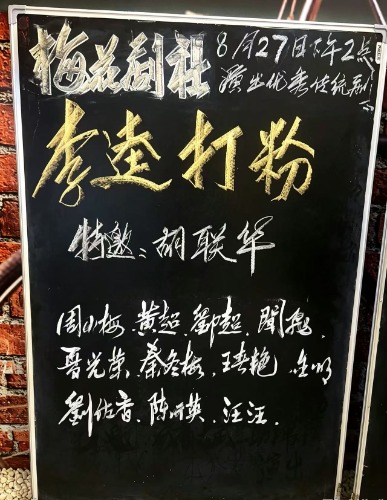 梅花剧社 8月27日下午2点
演出优秀传统剧
李逵打粉
特邀：胡联华
周小梅、黄超、邹超、闻艳、
晋光荣、秦冬梅、王春艳、
刘佑香、陈可英、汪汪、